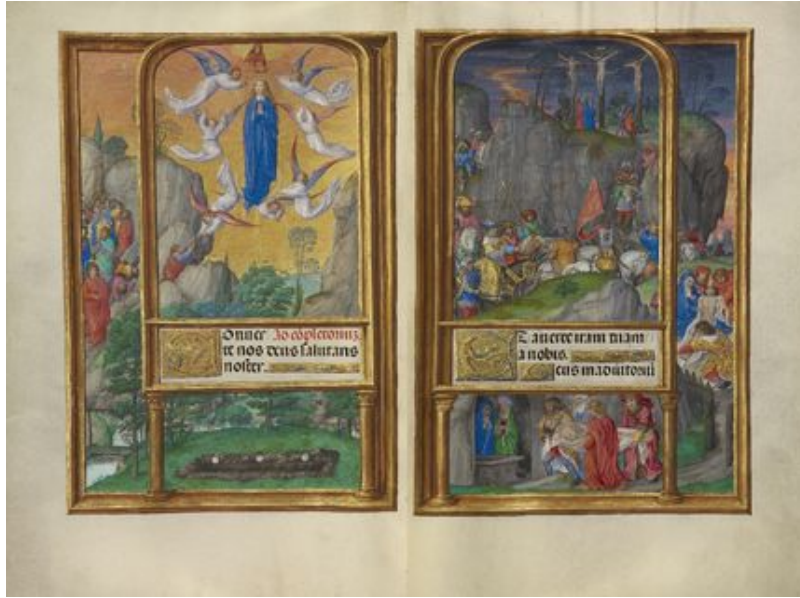 Onuer Ad cõpletoriuz.
te nos deus salutaris
noster.
T auerte iram tuam
a nobis.
eus in adiutoriũ